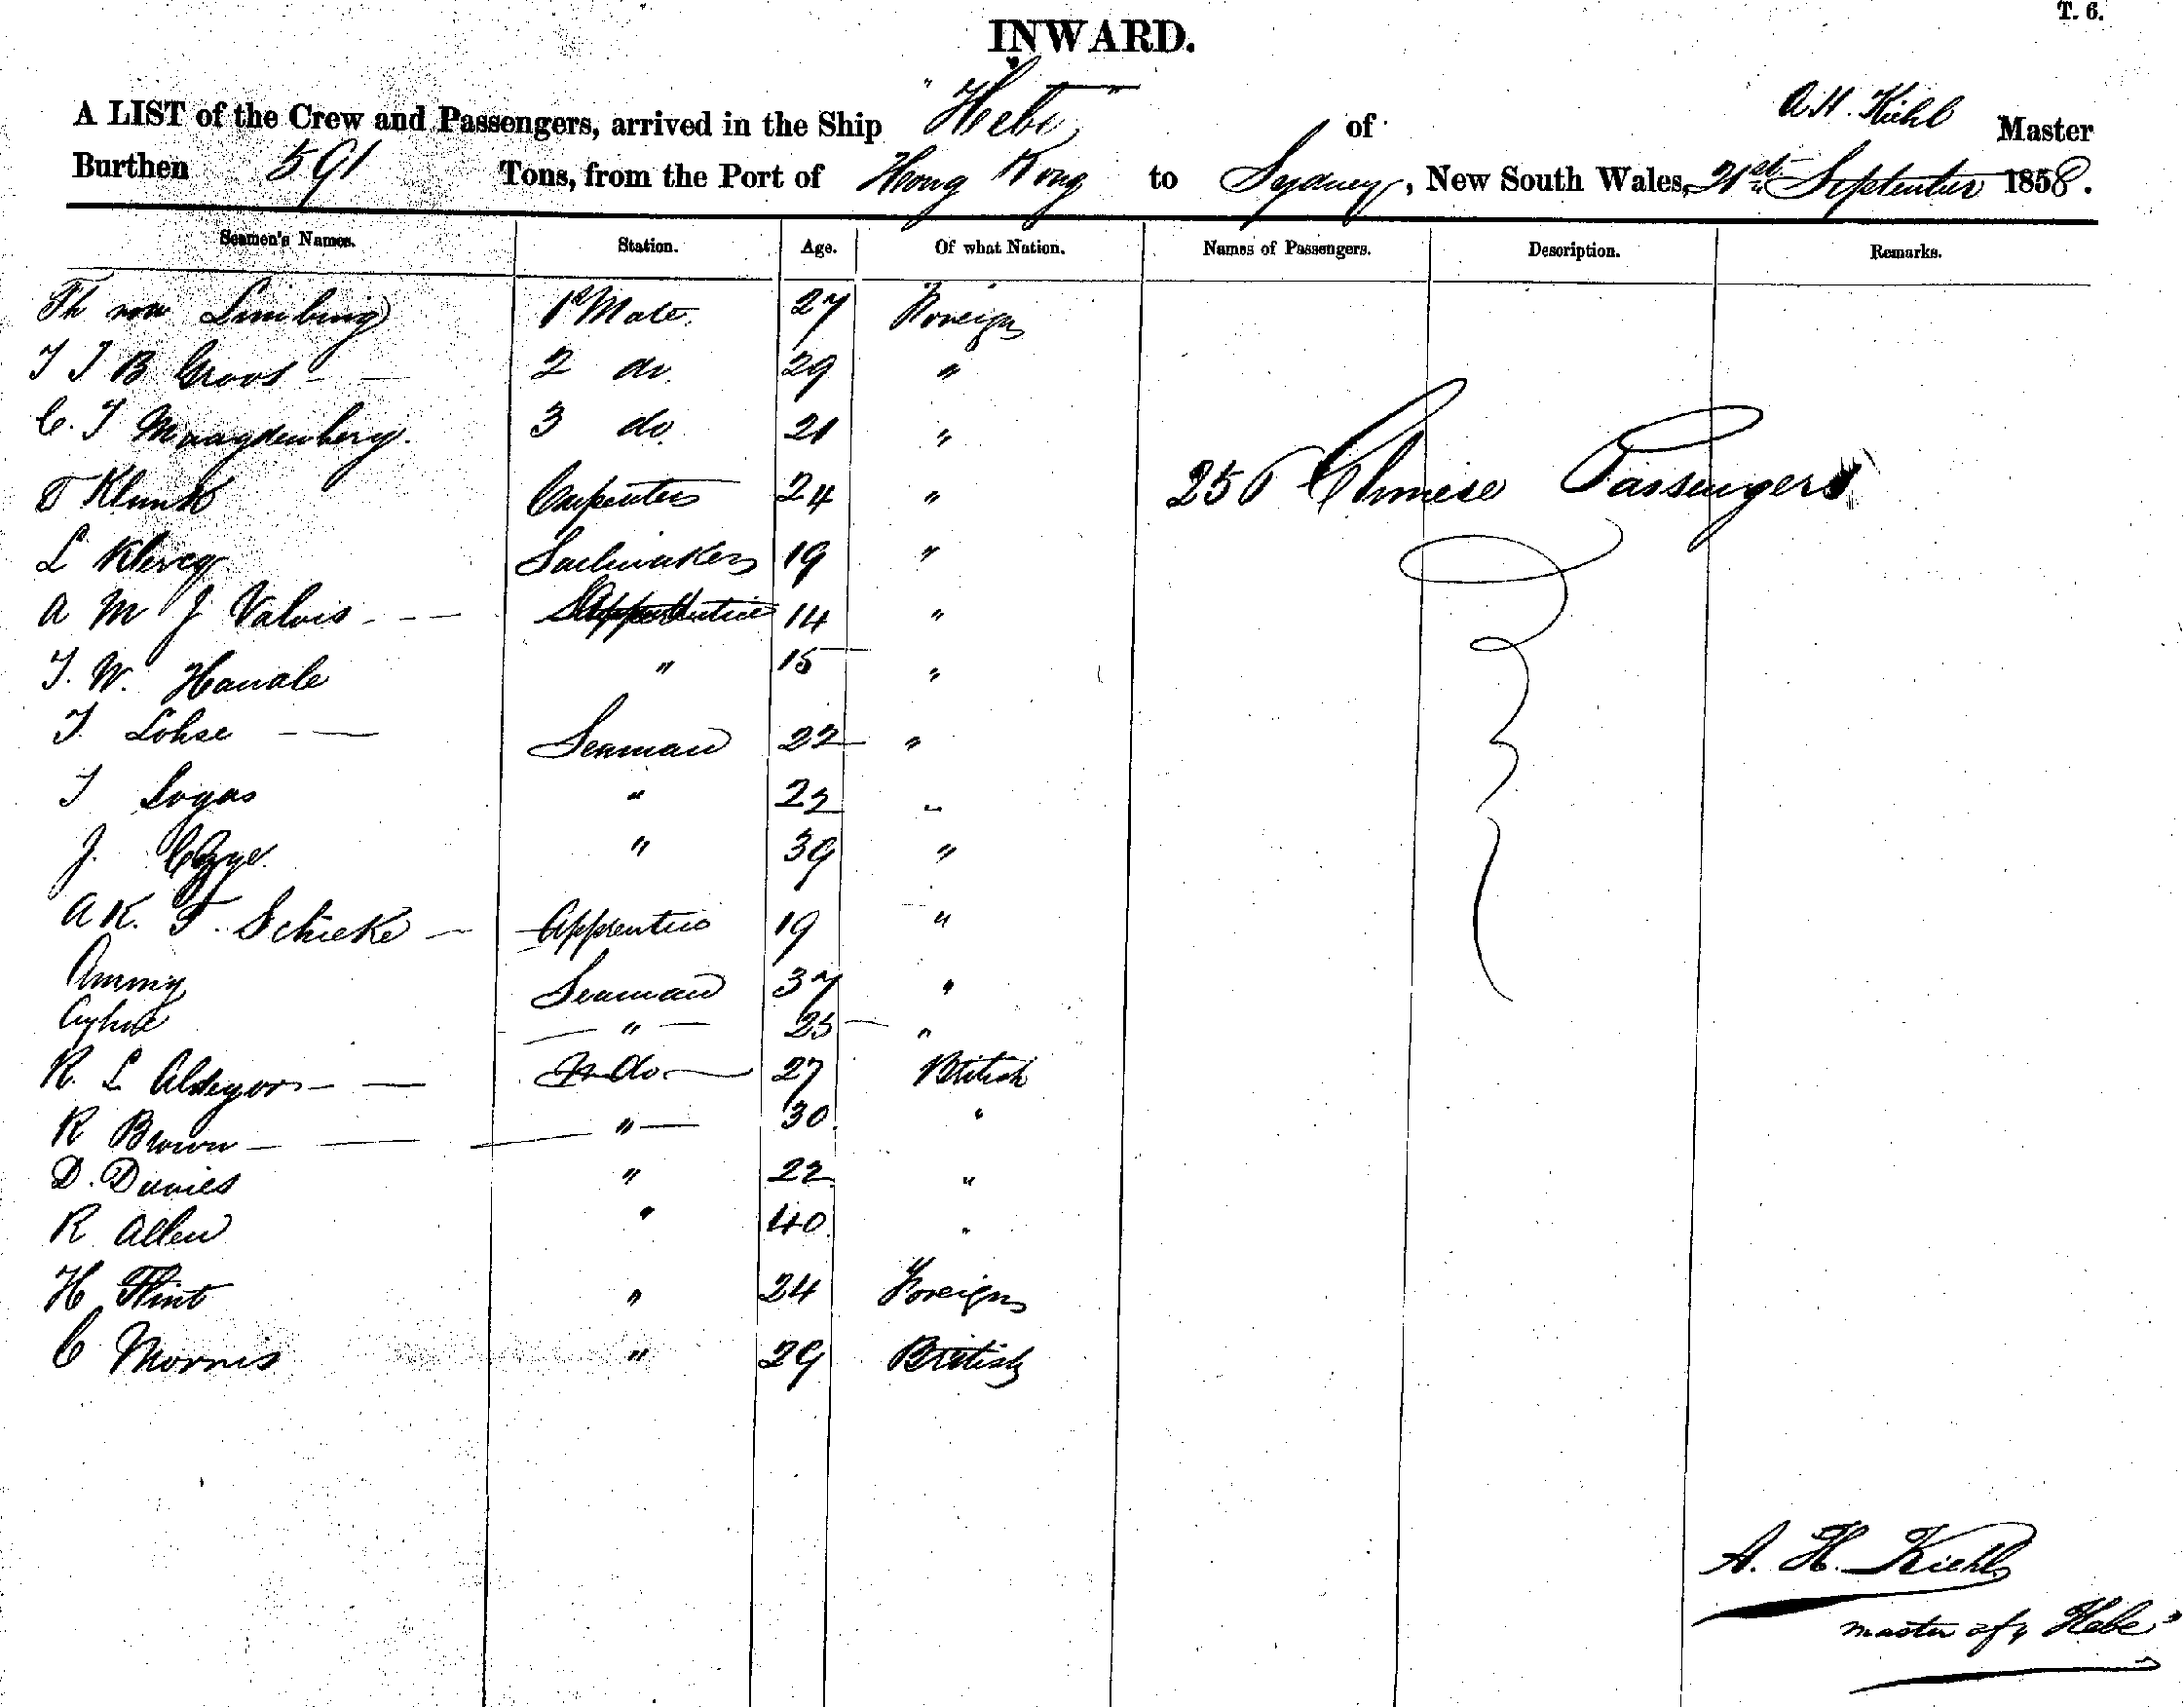 T. 6.
INWARD.
A LIST of the Crew and Passengers, arrived in the Ship "Hebe" of A. H. Kiehl Master
Burthen 591 Tons, from the Port of Hong Kong to Sydney, New South Wales, 21st September 1858.
Seamen's Names. Station. Age. Of what Nation. Names of Passengers. Description. Remarks.
Th von Limburg 1st Mate. 27 Foreign
J J B Groos 2 do. 29 "
C. J Maagdenberg. 3 do. 21 "
Klunk Carpenter 24 "
256 Chinese Passengers
L Klercq Sailmaker 19 "
A M J Valois Apprentice 14 "
J. W. " 15 "
J. Lohse Seaman 22 "
J " "
J. " 39 "
A K. F. Schieke Apprentice 19 "
Ammy Seaman 37 "
" 25 "
R. L do 27 British
R Brown " 30 "
D. Davies " 22 "
R Allen " 40 "
H Flint " 24 Foreign
C Morris " 29 British
A. H. Kiehl
master of "Hebe"